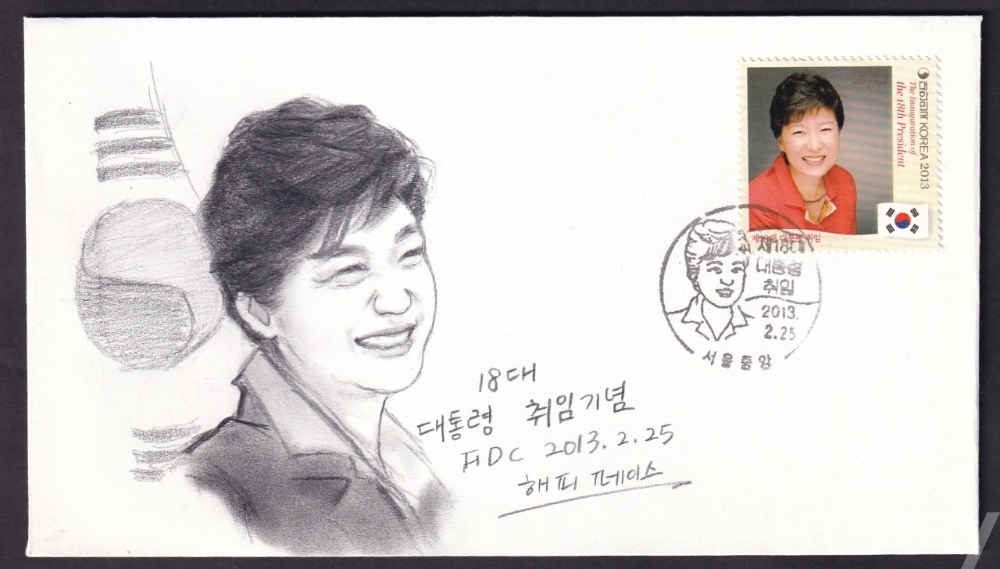 대한민국 KOREA 2013
The Inauguration of
the 18th President
제18대 대통령 취임
제18대
대통령
취임
2013.
2.25
서울중앙
18대
대통령 취임기념
FDC 2013.2.25
해피 페이스